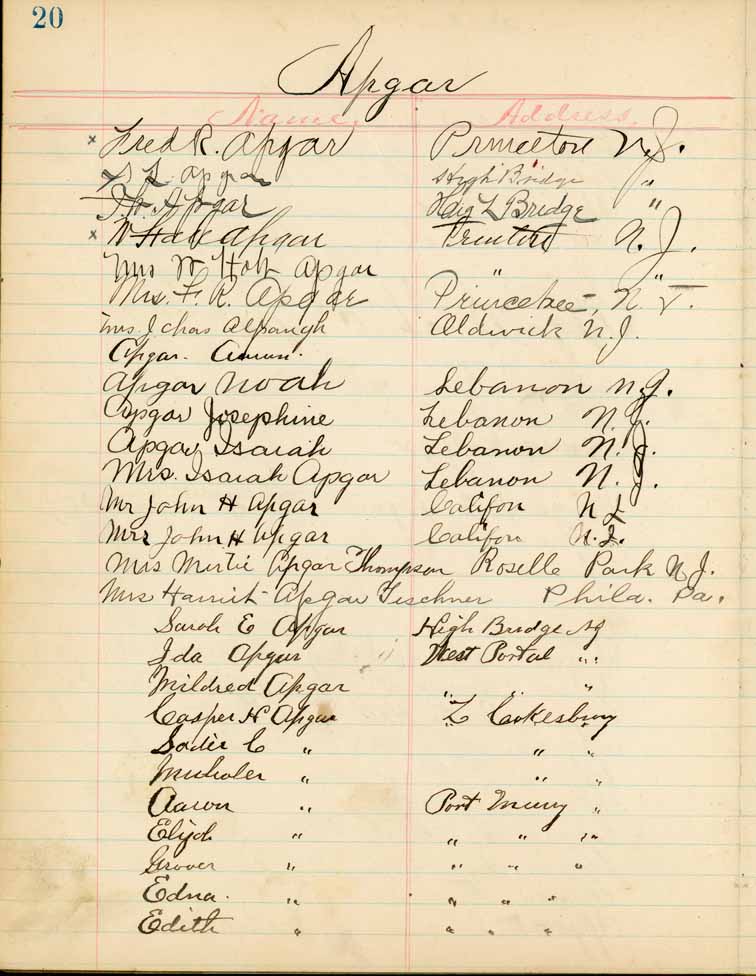 20
Apgar
Name. Address.
x Fred R. Apgar Princeton N.J.
Apgar High Bridge "
Apgar Bridge "
x W Apgar Trenton N.J.
Mrs W Holt Apgar " "
Mrs. F. R. Apgar Princeton, N.J.
Mrs. J Chas Alpaugh Oldwick N.J.
Apgar.
Apgar Noah Lebanon N.J.
Apgar Josephine Lebanon N.J.
Apgar Isaiah Lebanon N.J.
Mrs. Isaiah Apgar Lebanon N.J.
Mr John H Apgar Califon N J
Mrs John H Apgar Califon N.J.
Mrs Mertie Apgar Thompson Roselle Park N.J.
Mrs Harriet Apgar Phila. Pa.
Sarah E Apgar High Bridge NJ
Ida Apgar West Portal "
Mildred Apgar " " "
Casper H Apgar Cokesbury
Sadie C " " "
" " "
Aaron " Port Murry "
Elijah " " " "
Grover " " " "
Edna. " " " "
Edith " " " "